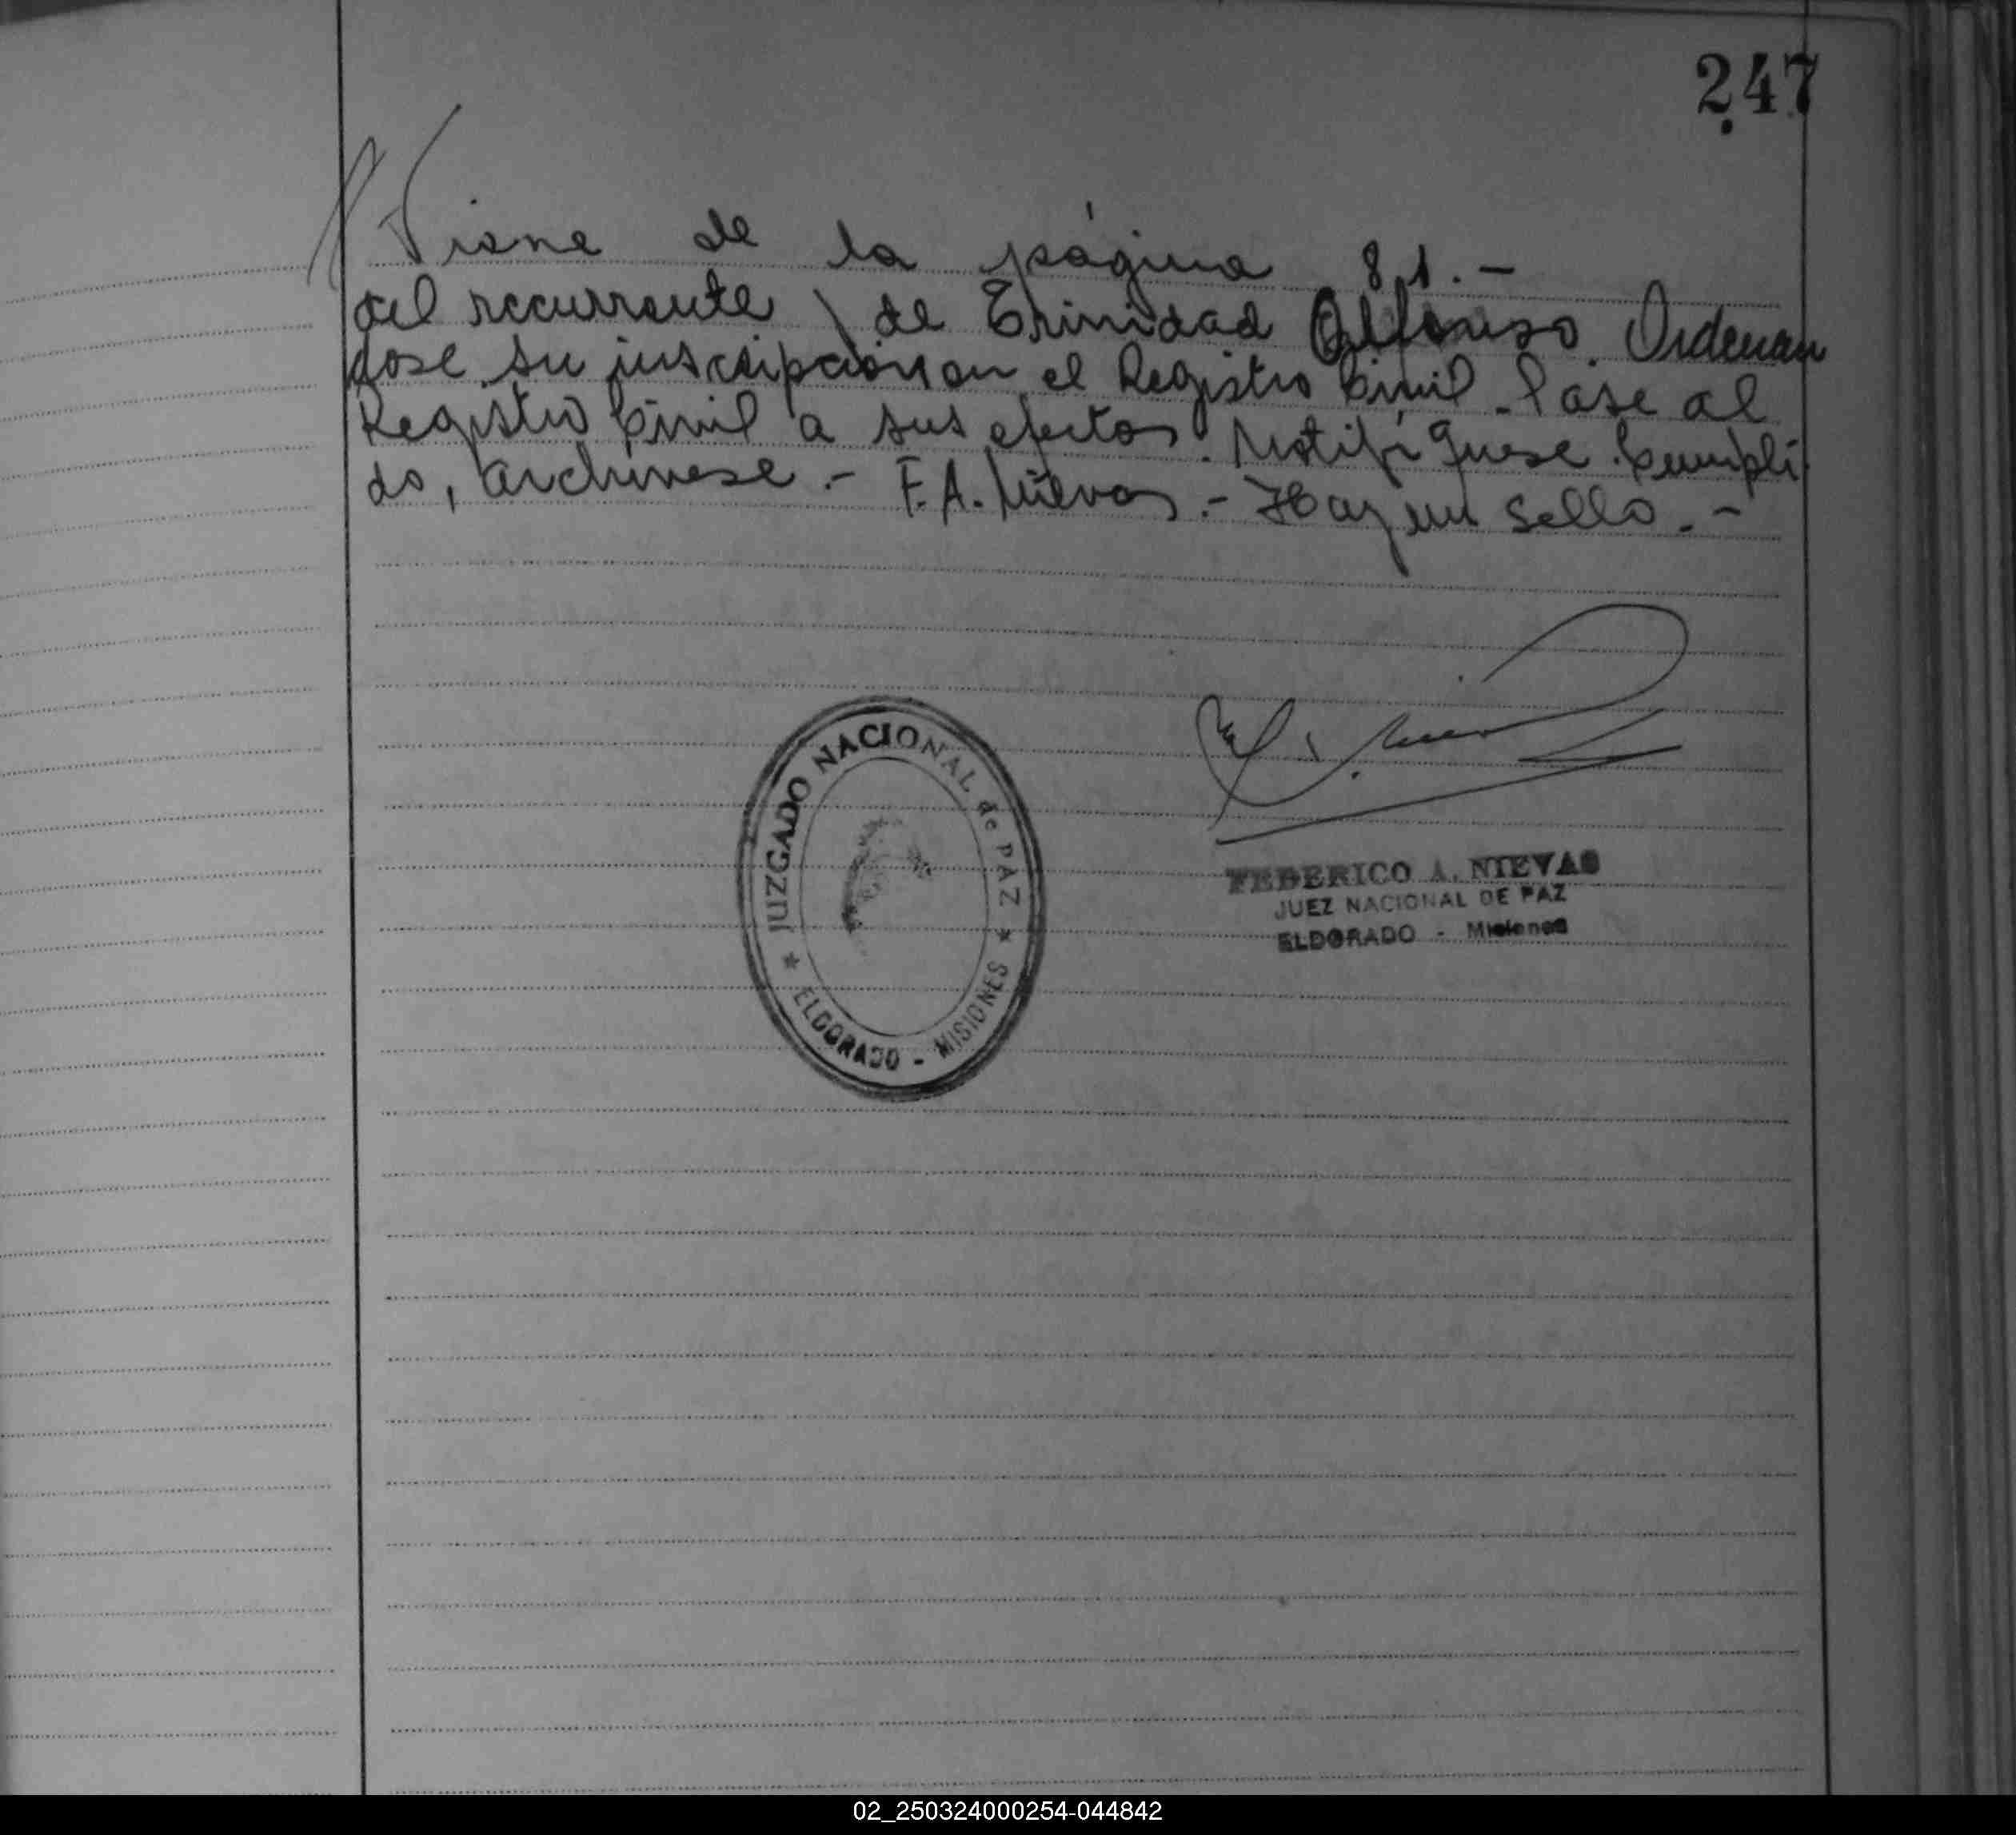 247
Viene de la página 81.-
del recurrente y de Trinidad Alfonso. Ordenan
dose su inscripción en el Registro Civil. Pase al
Registro Civil a sus efectos. Notifíquese. Cumpli
do, archívese.- F. A. Nievas.- Hay un sello.-
JUZGADO NACIONAL de PAZ
★ ELDORADO - MISIONES ★
FEDERICO A. NIEVAS
JUEZ NACIONAL DE PAZ
ELDORADO - Misiones
02_250324000254-044842